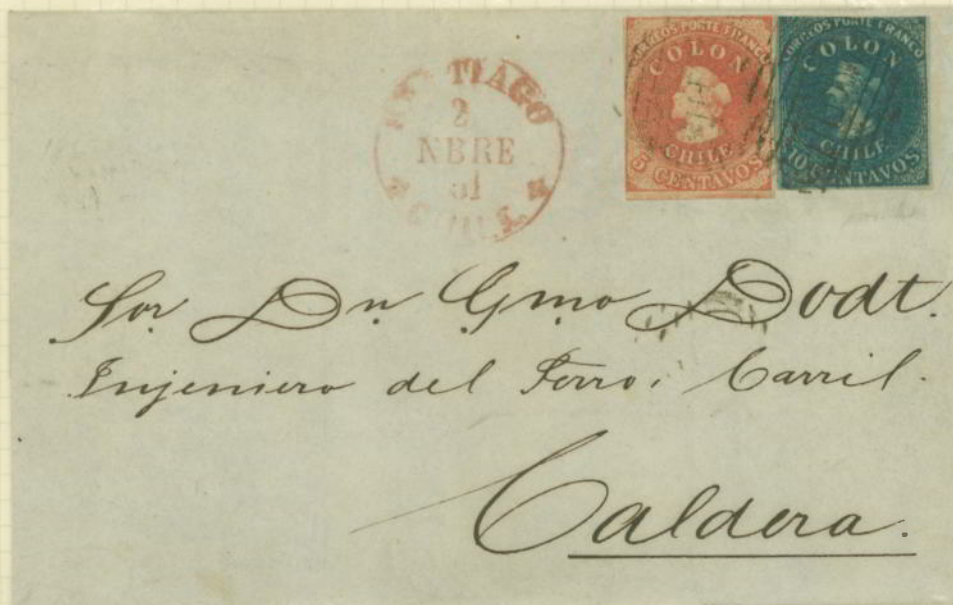 CORREOS PORTE FRANCO
COLON
CHILE
5 CENTAVOS
CORREOS PORTE FRANCO
COLON
CHILE
10 CENTAVOS
2
NBRE
Sor Dn Gmo Dodt.
Injeniero del Ferro, Carril.
Caldera.